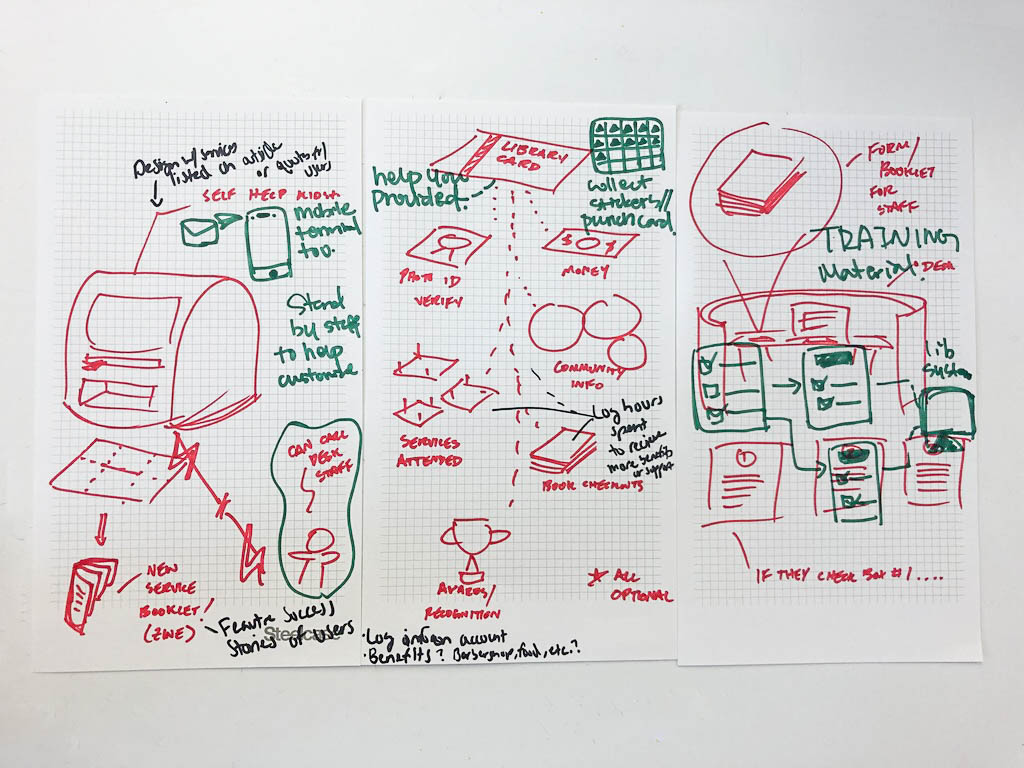 Design w/ services
listed on outside
or quotes f/
users
SELF HELP KIOSK
mobile
terminal
too.
Stand
by staff
to help
customize
CAN CALL
DESK
STAFF
NEW
SERVICE
BOOKLET!
(ZINE)
Feature success
stories of users
Steelcase
LIBRARY
CARD
help you
provided.
collect
stickers//
punch card
PHOTO ID
VERIFY
$ $
MONEY
COMMUNITY
INFO
SERVICES
ATTENDED
Log hours
spent
to receive
more benefits
or support
BOOK CHECKOUTS
AWARDS/
RECOGNITION
* ALL
OPTIONAL
· Log info on account
· Benefits? Barbershop, food, etc.?
FORM/
BOOKLET
FOR
STAFF
TRAINING
Material.
DESK
lib
system
1
IF THEY CHECK BOX #1....